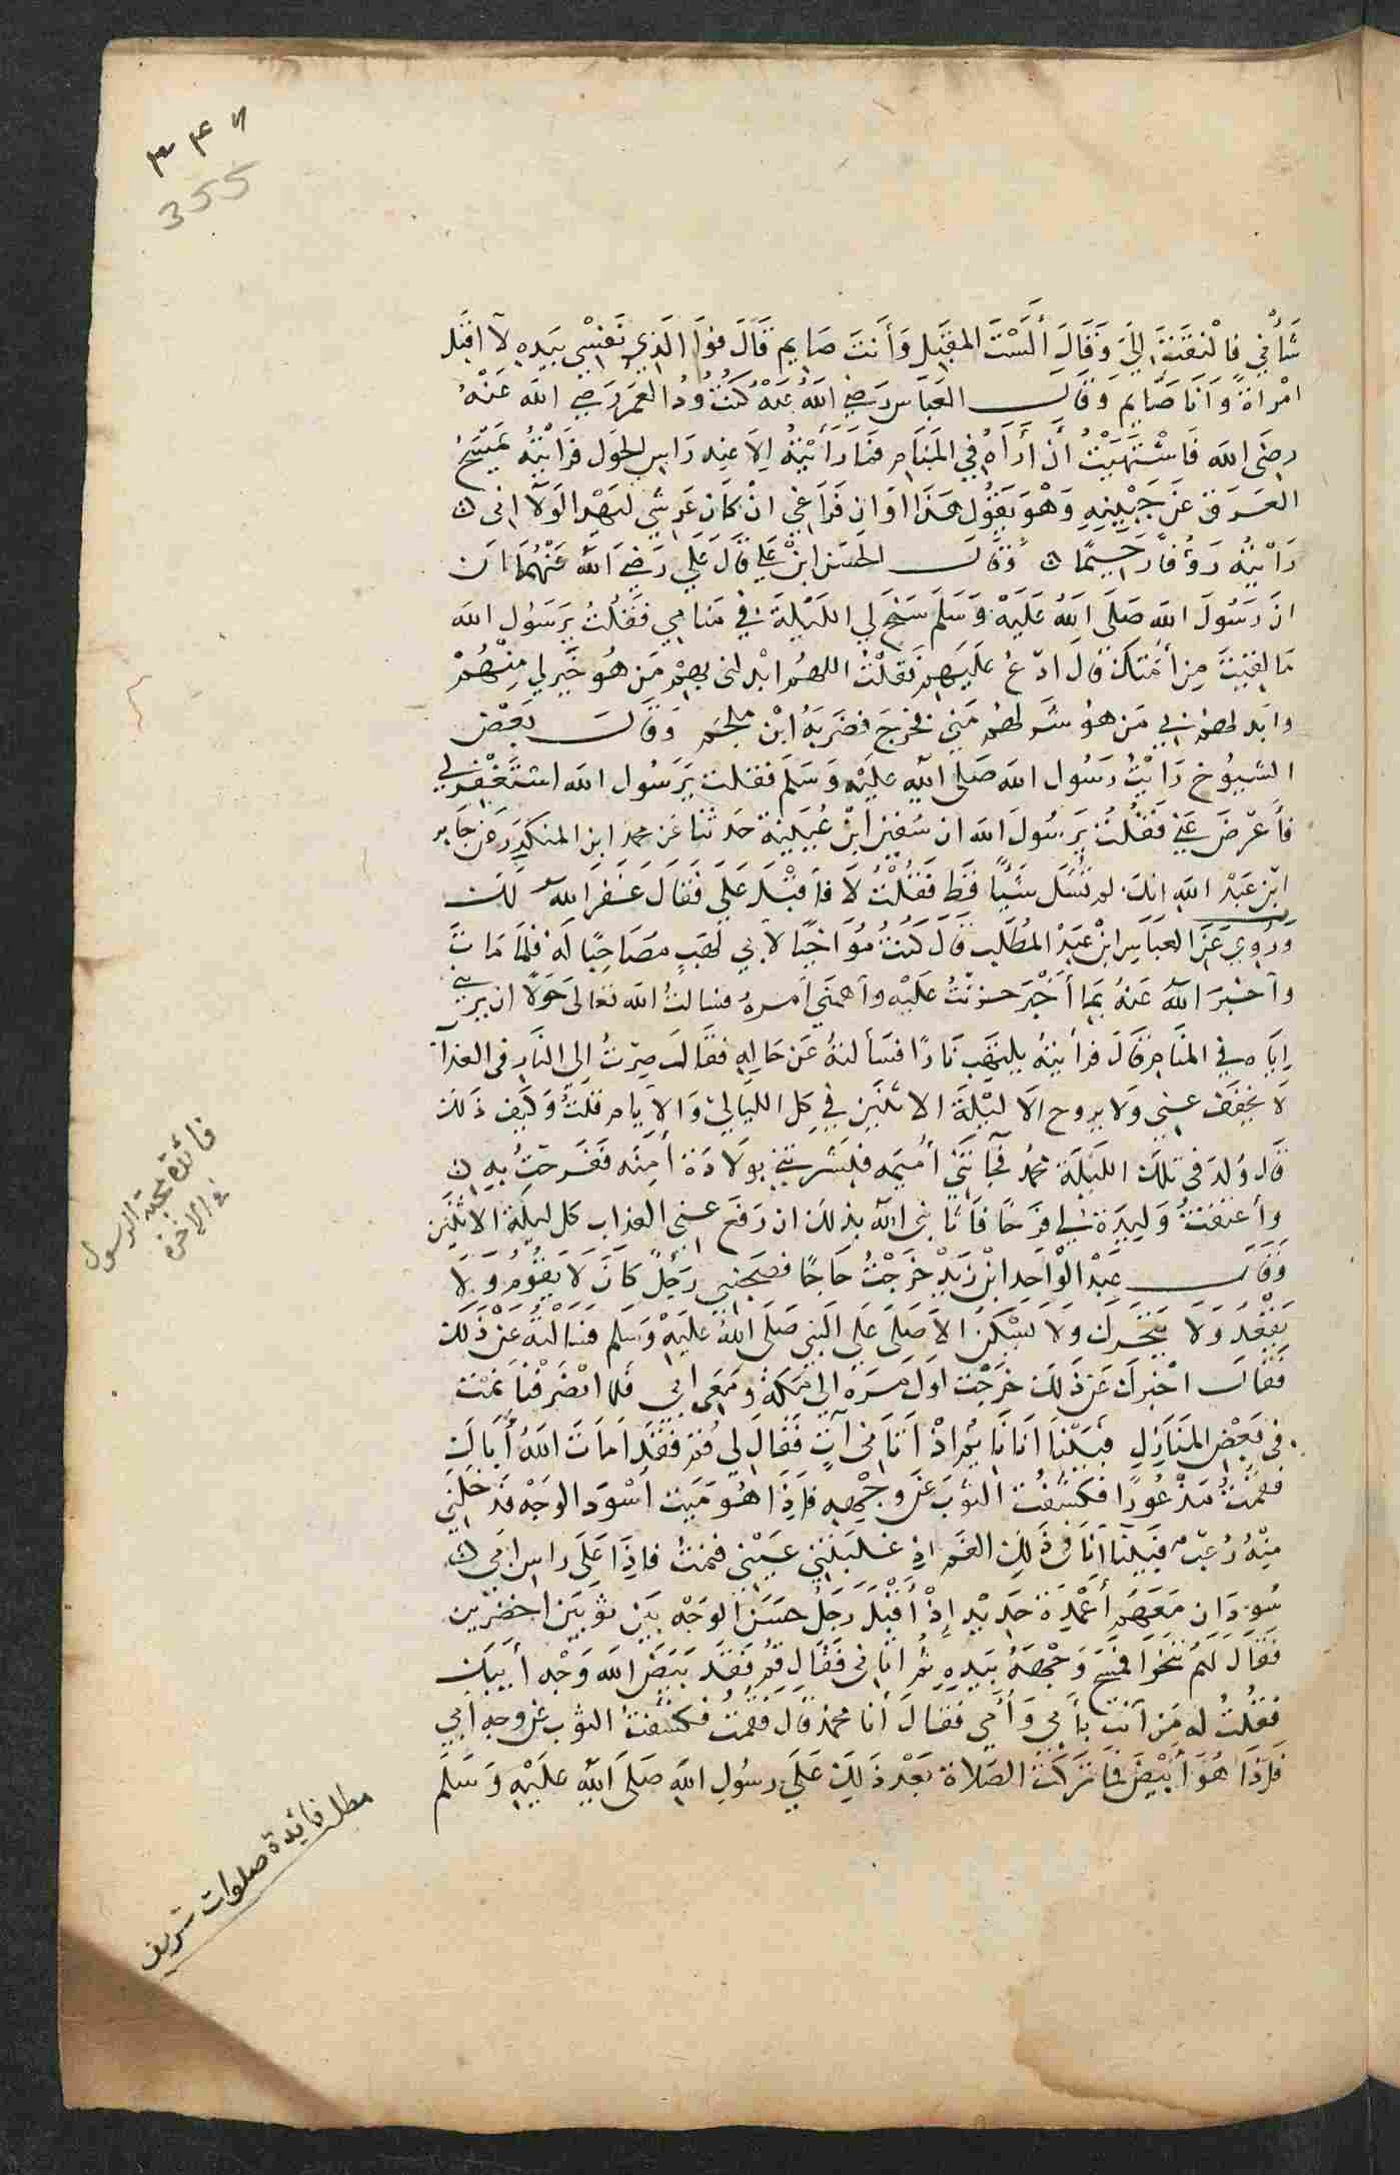 ٣٤٦
355
شأني فالتفت الي وقال ألست المقبل وأنت صايم قال فوالذي نفسي بيده لا اقبل
امرأة وأنا صايم وقال العباس رضي الله عنه كنت ودا لعمر رضي الله عنه
رضى الله فاشتهيت أن أراه في المنام فما رأيته الا عند راس الحول فرأيته يمسح
العرق عن جبينه وهو يقول هذا اوان فراغي ان كان عرشي ليهد لولا اني
رأيته رؤفا رحيما وقال الحسن ابن علي قال علي رضي الله عنهما ان
ان رسول الله صلى الله عليه وسلم سنح لي الليلة في منامي فقلت يرسول الله
ما لقيت من أمتك قال ادع عليهم فقلت اللهم ابدلني بهم من هو خير لي منهم
وابدلهم بي من هو شر لهم مني فخرج فضربه ابن ملجم وقال بعض
الشيوخ رأيت رسول الله صلى الله عليه وسلم فقلت يرسول الله استغفر لي
فأعرض عني فقلت يرسول الله ان سفين ابن عيينة حدثنا عن محمد ابن المنكدر عن جابر
ابن عبد الله انك لم تسئل شيأ قط فقلت لا فأقبل علي فقال غفر الله لك
وروي عن العباس ابن عبد المطلب قال كنت مواخيا لابي لهب مصاحبا له فلما مات
وآخبر الله عنه بما أخبر حزنت عليه وأهمني امره فسالت الله تعالى حولا ان يريني
اياه في المنام قال فرأيته يلتهب نارا فسألته عن حاله فقال صرت الى النار في العذاب
لا يخفف عني ولا يروح الا ليلة الاثنين في كل الليالي والايام قلت وكيف ذلك
قال ولد في تلك الليلة محمد فجآءتني أميمه فبشرتني بولادة أمنه ففرحت به
وأعتقت وليدة لي فرحا فأثابني الله بذلك ان رفع عني العذاب كل ليلة الاثنين
وقال عبد الواحد ابن زيد خرجت حاجا فصحبني رجل كان لا يقوم ولا
يقعد ولا يتحرك ولا يسكن الا صلى على النبي صلى الله عليه وسلم فسالته عن ذلك
فقال اخبرك عن ذلك خرجت اول مرة الى مكة ومعي ابي فلما انصرفنا نمت
في بعض المنازل فبينا انا نايم اذ اتاني آت فقال لي قم فقد امات الله أباك
فقمت مذعورا فكشفت الثوب عن وجهه فاذا هو ميت اسود الوجه فدخلني
منه رعب فبينا أنا في ذلك الغم اذ غلبتني عيني فنمت فاذا على راس ابي
سودان معهم أعمدة حديد إذ أقبل رجل حسن الوجه بين ثوبين اخضرين
فقال لهم تنحوا فمسح وجهه بيده ثم اتاني فقال قم فقد بيض الله وجه أبيك
فقلت له من أنت بأبي وأمي فقال أنا محمد قال فقمت فكشفت الثوب عن وجه أبي
فإذا هو أبيض فما تركت الصلاة بعد ذلك على رسول الله صلى الله عليه وسلم
فائدة محبة الرسول
في الاخرة
مطلب فائدة صلوات شريف